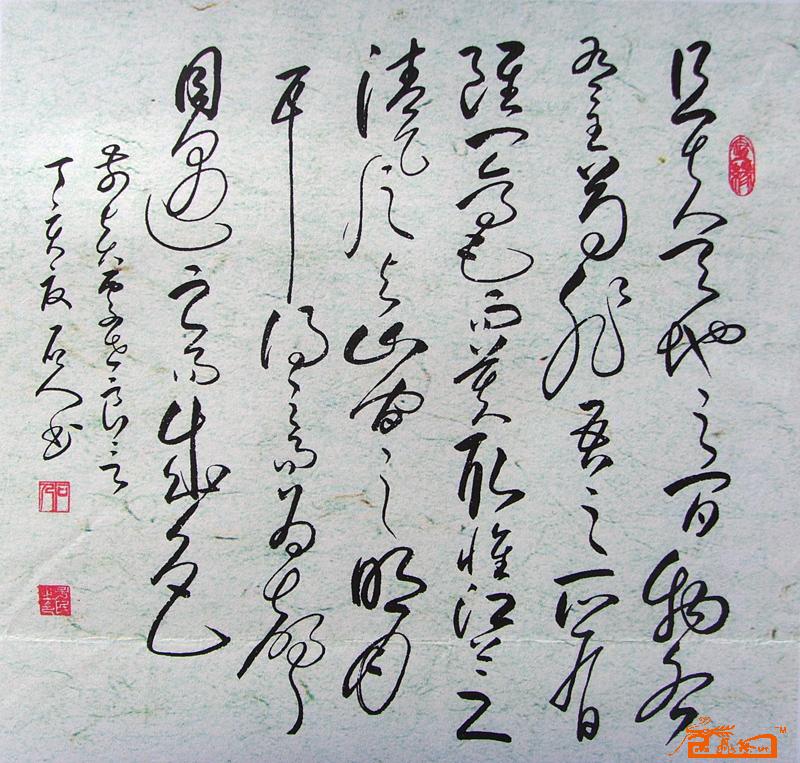 且夫天地之间物各
有主苟非吾之所有
虽一毫也而莫取惟江上之
清风与山间之明月
耳得之而为声
目遇之而成色
丁亥夏石人书